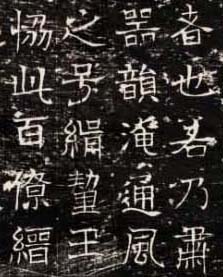 者也若乃肅
器韻淹通風
之号緝釐王
恊此百僚縉